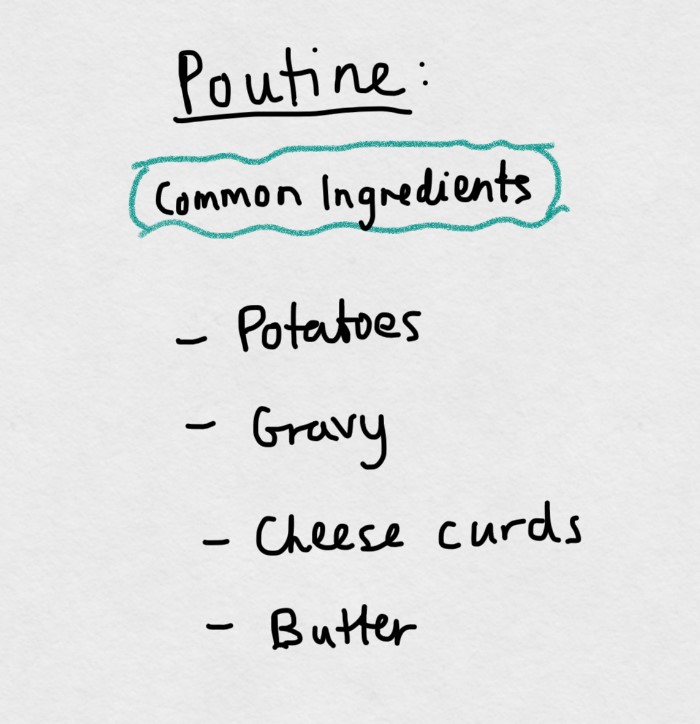 Poutine:
Common Ingredients
- Potatoes
- Gravy
- Cheese curds
- Butter